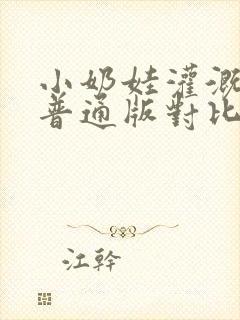 小奶娃灌溉
普通版對比
江幹